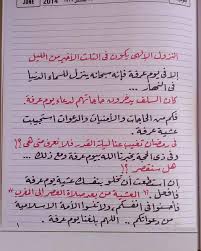 JUNE 2014
النزول الإلهي يكون في الثلث الأخير من الليل
إلا في يوم عرفة فإنه سبحانه ينزل للسماء الدنيا
في النهار ...
كان السلف يدخرون حاجاتهم لدعاء يوم عرفة
فكم من الحاجات والأمنيات والدعوات استجيبت
عشية عرفة
في رمضان تخفى عنا ليلة القدر فلا نعرف متى هي؟
وفي ذي الحجة يخبرنا الله بيوم عرفة ومع ذلك ...
هل سنقصر؟
إن استطعت أن تخلو بنفسك عشية يوم عرفة
فافعل " العشية من بعد صلاة العصر إلى المغرب "
أنفسكم ولا تنسوا الأمة الإسلامية
من دعواتكم .. اللهم بلغنا يوم عرفة .